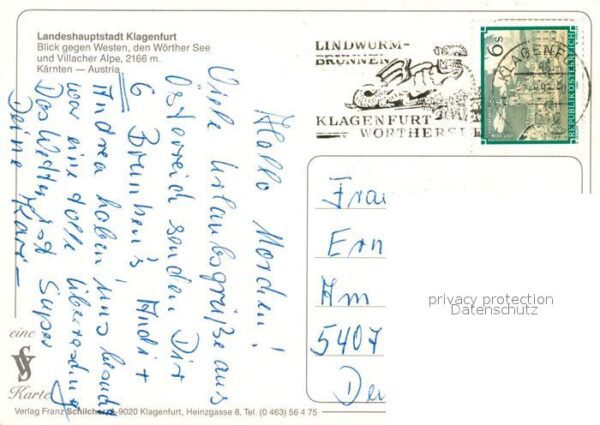 Landeshauptstadt Klagenfurt
Blick gegen Westen, den Wörther See
und Villacher Alpe, 2166 m.
Kärnten — Austria
Hallo
Viele Urlaubsgrüße aus
Österreich senden Dir
6 Andi +
Andrea haben uns besucht
war eine tolle
Das Wetter ist Super
Deine
eine
VS
Karte
Verlag Franz Schilcher A-9020 Klagenfurt, Heinzgasse 8, Tel. (0 463) 56 4 75
LINDWURM-
BRUNNEN
KLAGENFURT
WÖRTHERSEE
KLAGENFU
6 S
REPUBLIK ÖSTERREICH
Frau
Ern
Am
5407
privacy protection
Datenschutz